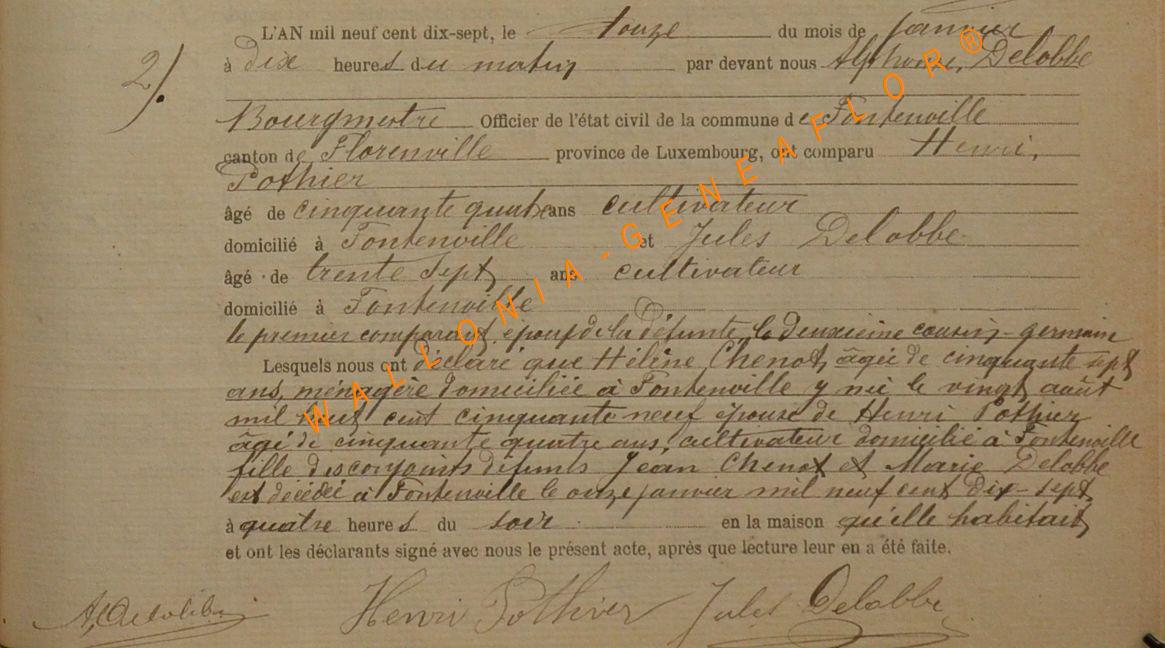 2).
L'AN mil neuf cent dix-sept, le douze du mois de janvier
à dix heures du matin par devant nous Alphonse, Delobbe
Bourgmestre Officier de l'état civil de la commune de Fontenoille
canton de Florenville province de Luxembourg, ont comparu Henri,
Pothier
âgé de cinquante quatre ans cultivateur
domicilié à Fontenoille et Jules Delobbe
âgé de trente sept ans cultivateur
domicilié à Fontenoille
le premier comparant, époux de la défunte, le deuxième cousin-germain
Lesquels nous ont déclaré que Hélène Chenot, âgée de cinquante sept
ans, ménagère domiciliée à Fontenoille y née le vingt août
mil huit cent cinquante neuf épouse de Henri Pothier
âgé de cinquante quatre ans, cultivateur domicilié à Fontenoille
fille des conjoints défunts Jean Chenot et Marie Delobbe
est décédée à Fontenoille le onze janvier mil neuf cent dix-sept,
à quatre heures du soir en la maison qu'elle habitait,
et ont les déclarants signé avec nous le présent acte, après que lecture leur en a été faite.
Henri Pothier Jules Delobbe
WALLONIA-GENEAFLOR®